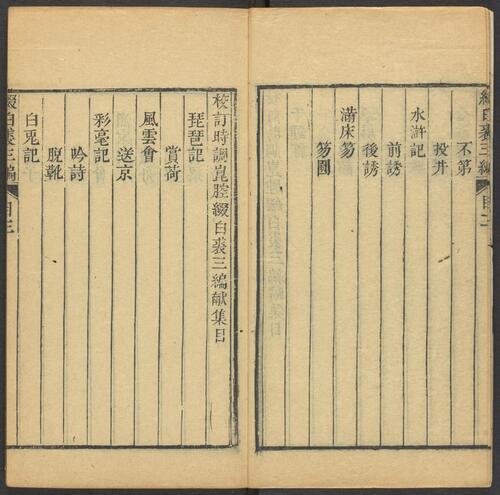 綴白裘三編
目二
不第
投井
水滸記
前誘
後誘
滿床笏
笏圓
校訂時調崑腔綴白裘三編獻集目
琵琶記
賞荷
風雲會
送京
彩毫記
吟詩
脫靴
白兎記
綴白裘三編
目三